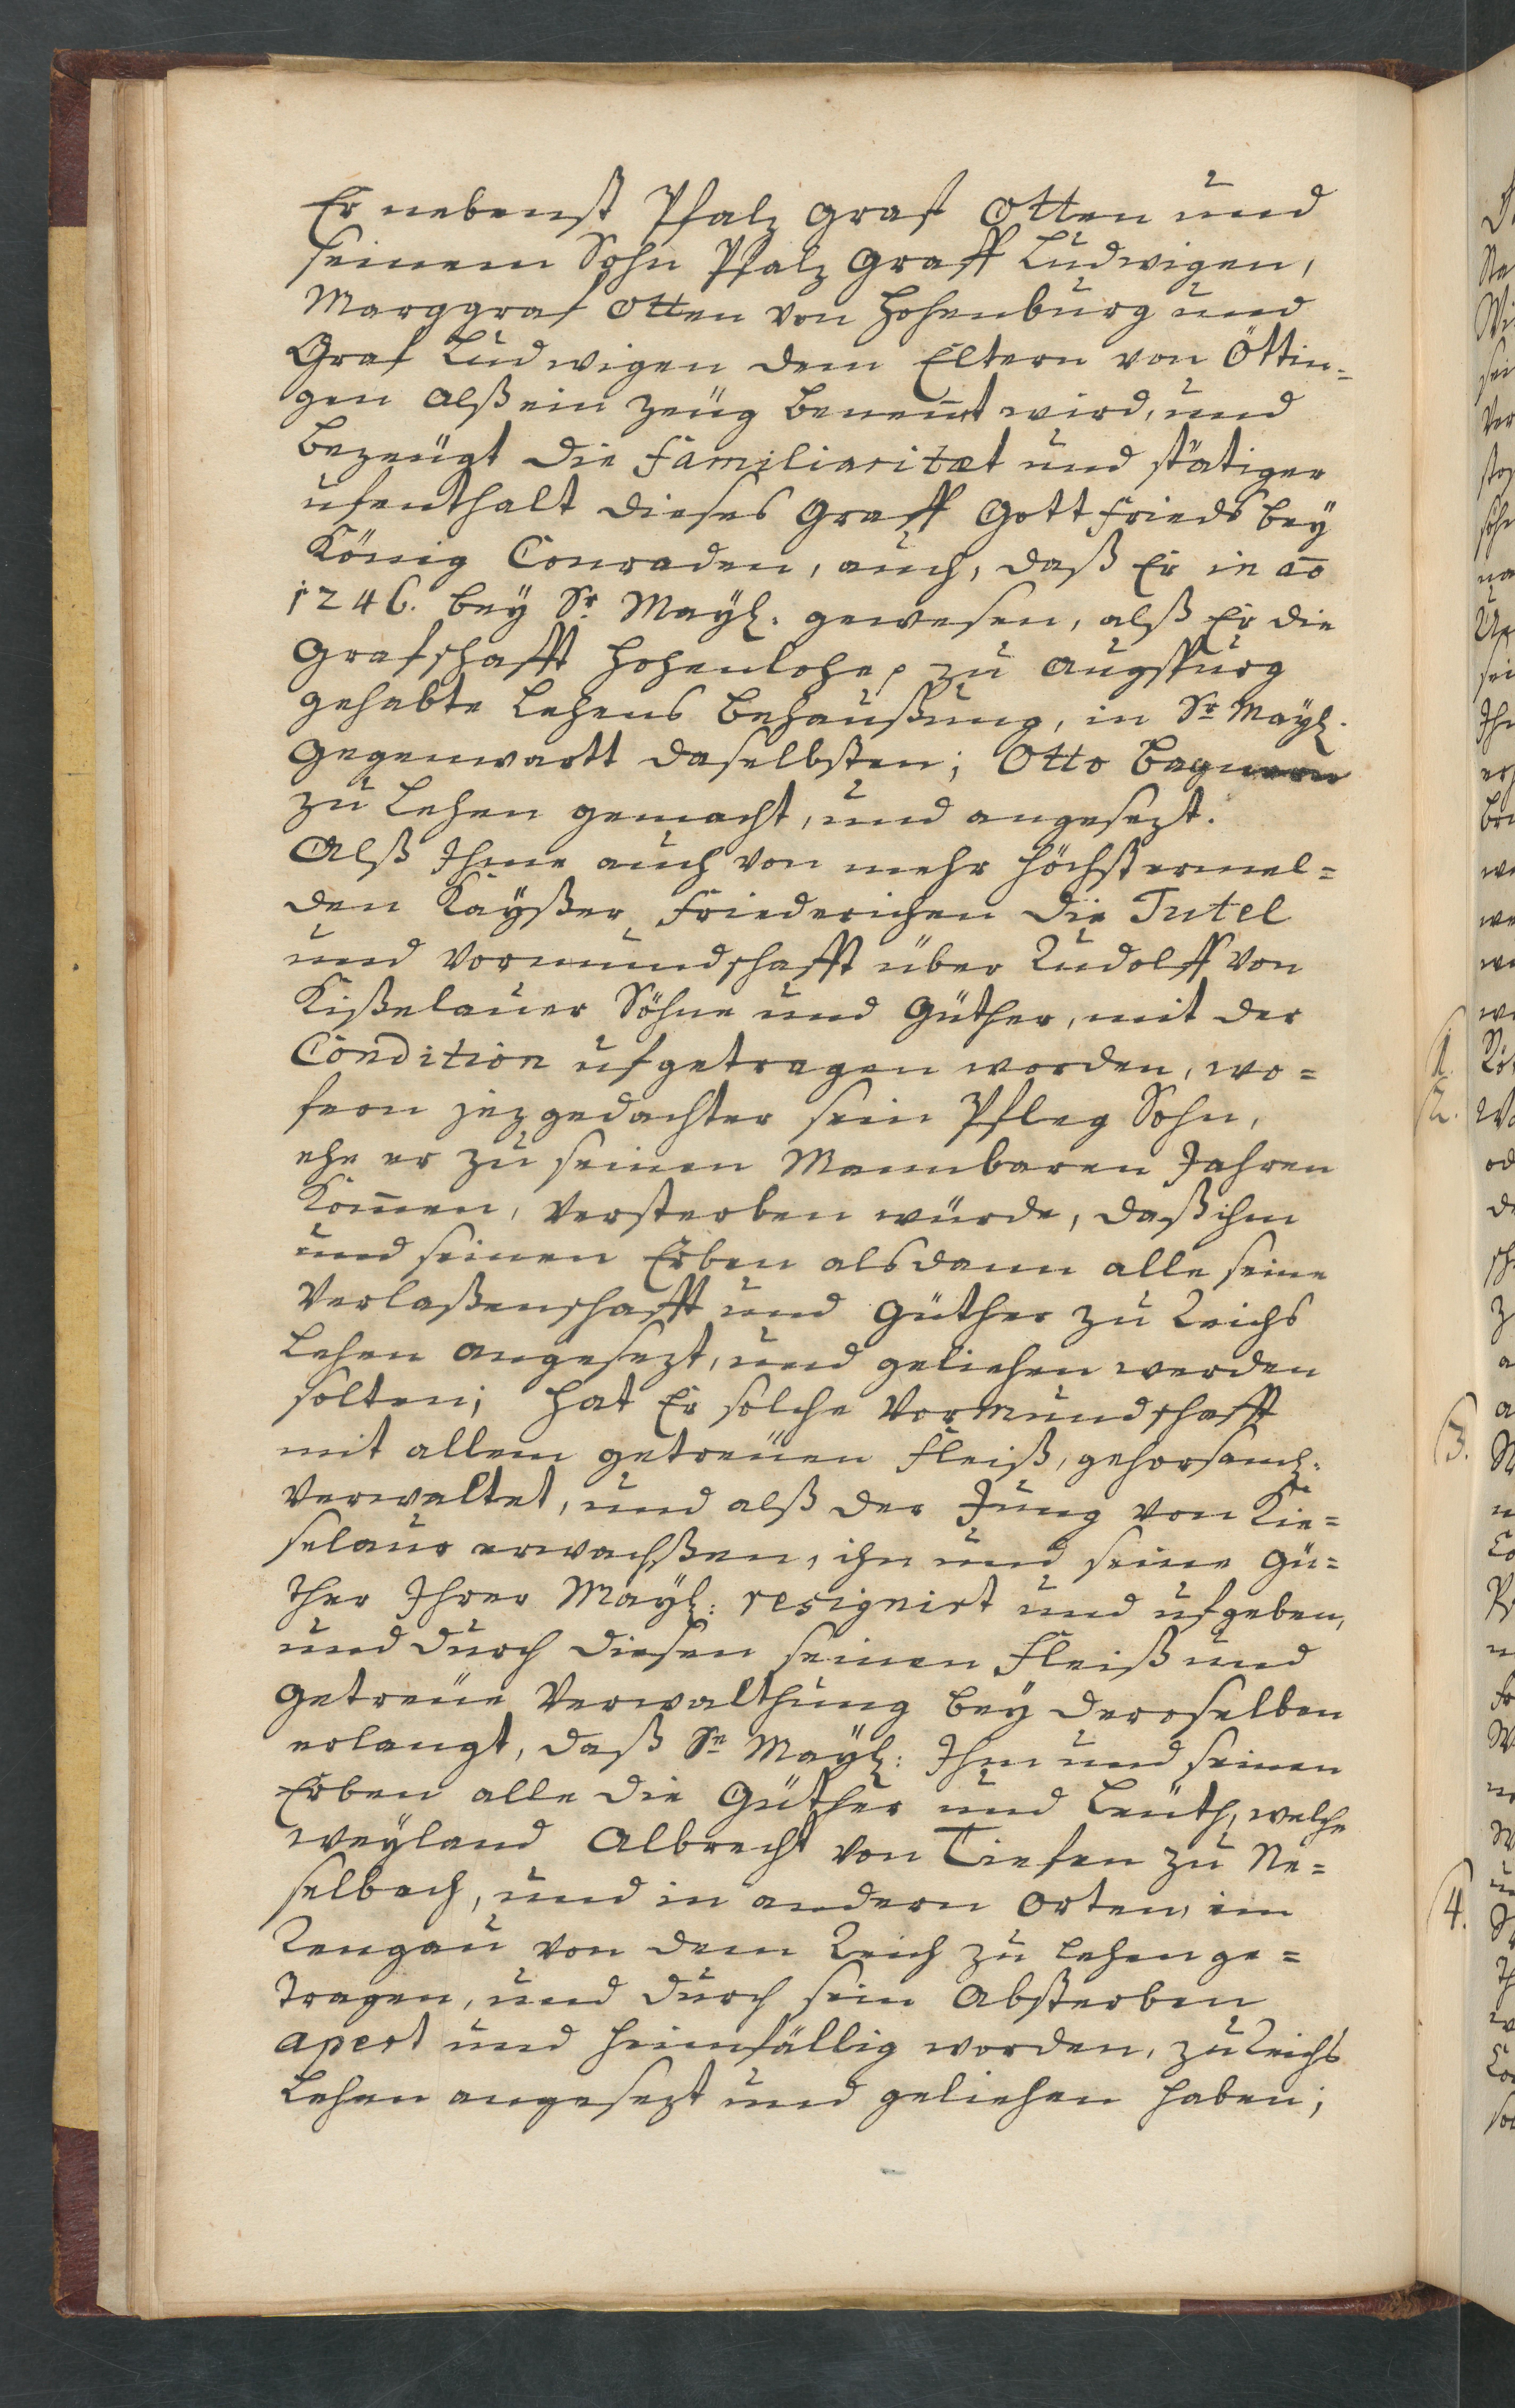 Er nebenst Pfalz graf Otten und
seinem Sohn Pfalz Graff Ludwigen,
Marggraf Otten von Hohenburg und
Graf Ludwigen dem Eltern von Öttin=
gen alß ein Zeüg benen̄t wird, und
bezeügt die Familiaritæt und stätiger
ufenthalt dieses Graff Gottfrieds bey
König Conraden, auch, daß Er in ao
1246. bey Sr Mayl. gewesen, alß Er die
Grafschafft Hohenlohe, zu Augspurg
gehabte Lehens Behaußung, in Sr Mayl.
Gegenwartt daselbsten; Otto
zu Lehen gemacht, und angesezt.
Alß Ihme auch von mehr höchstermel=
den Kayßer Friederichen die Tutel
und Vormundschafft über Rudolff von
Kißelauer Söhne und Güther, mit der
Condition ufgetragen worden, wo=
fern jezgedachter sein Pfleg Sohn,
ehe er zu seinen Mannbaren Jahren
kom̄en, versterben würde, daß ihm
und seinen Erben alsdann alle seine
Verlaßenschafft und Güther zu Reichs
Lehen angesezt, und geliehen werden
solten; hat Er solche Vormundschafft
mit allem getreüen Fleiß, gehorsaml.
verwaltet, und alß der Jung von Kie=
selaur erwachßen, ihn und seine Gü=
ther Ihrer Mayl: resignirt und ufgeben,
und durch diesen seinen Fleiß und
getreüe Verwalthung bey deroselben
erlangt, daß Se Mayl: Ihm und seinen
Erben alle die Güther und Leüth, welche
weyland Albrecht von Tiefen zu Ne=
selbach, und in andern Orten, im
Rengau von dem Reich zu Lehen ge=
tragen, und durch sein Absterben
apert und heimfällig worden, zu Reichs
Lehen angesezt und geliehen haben;
1.
2.
3.
4.